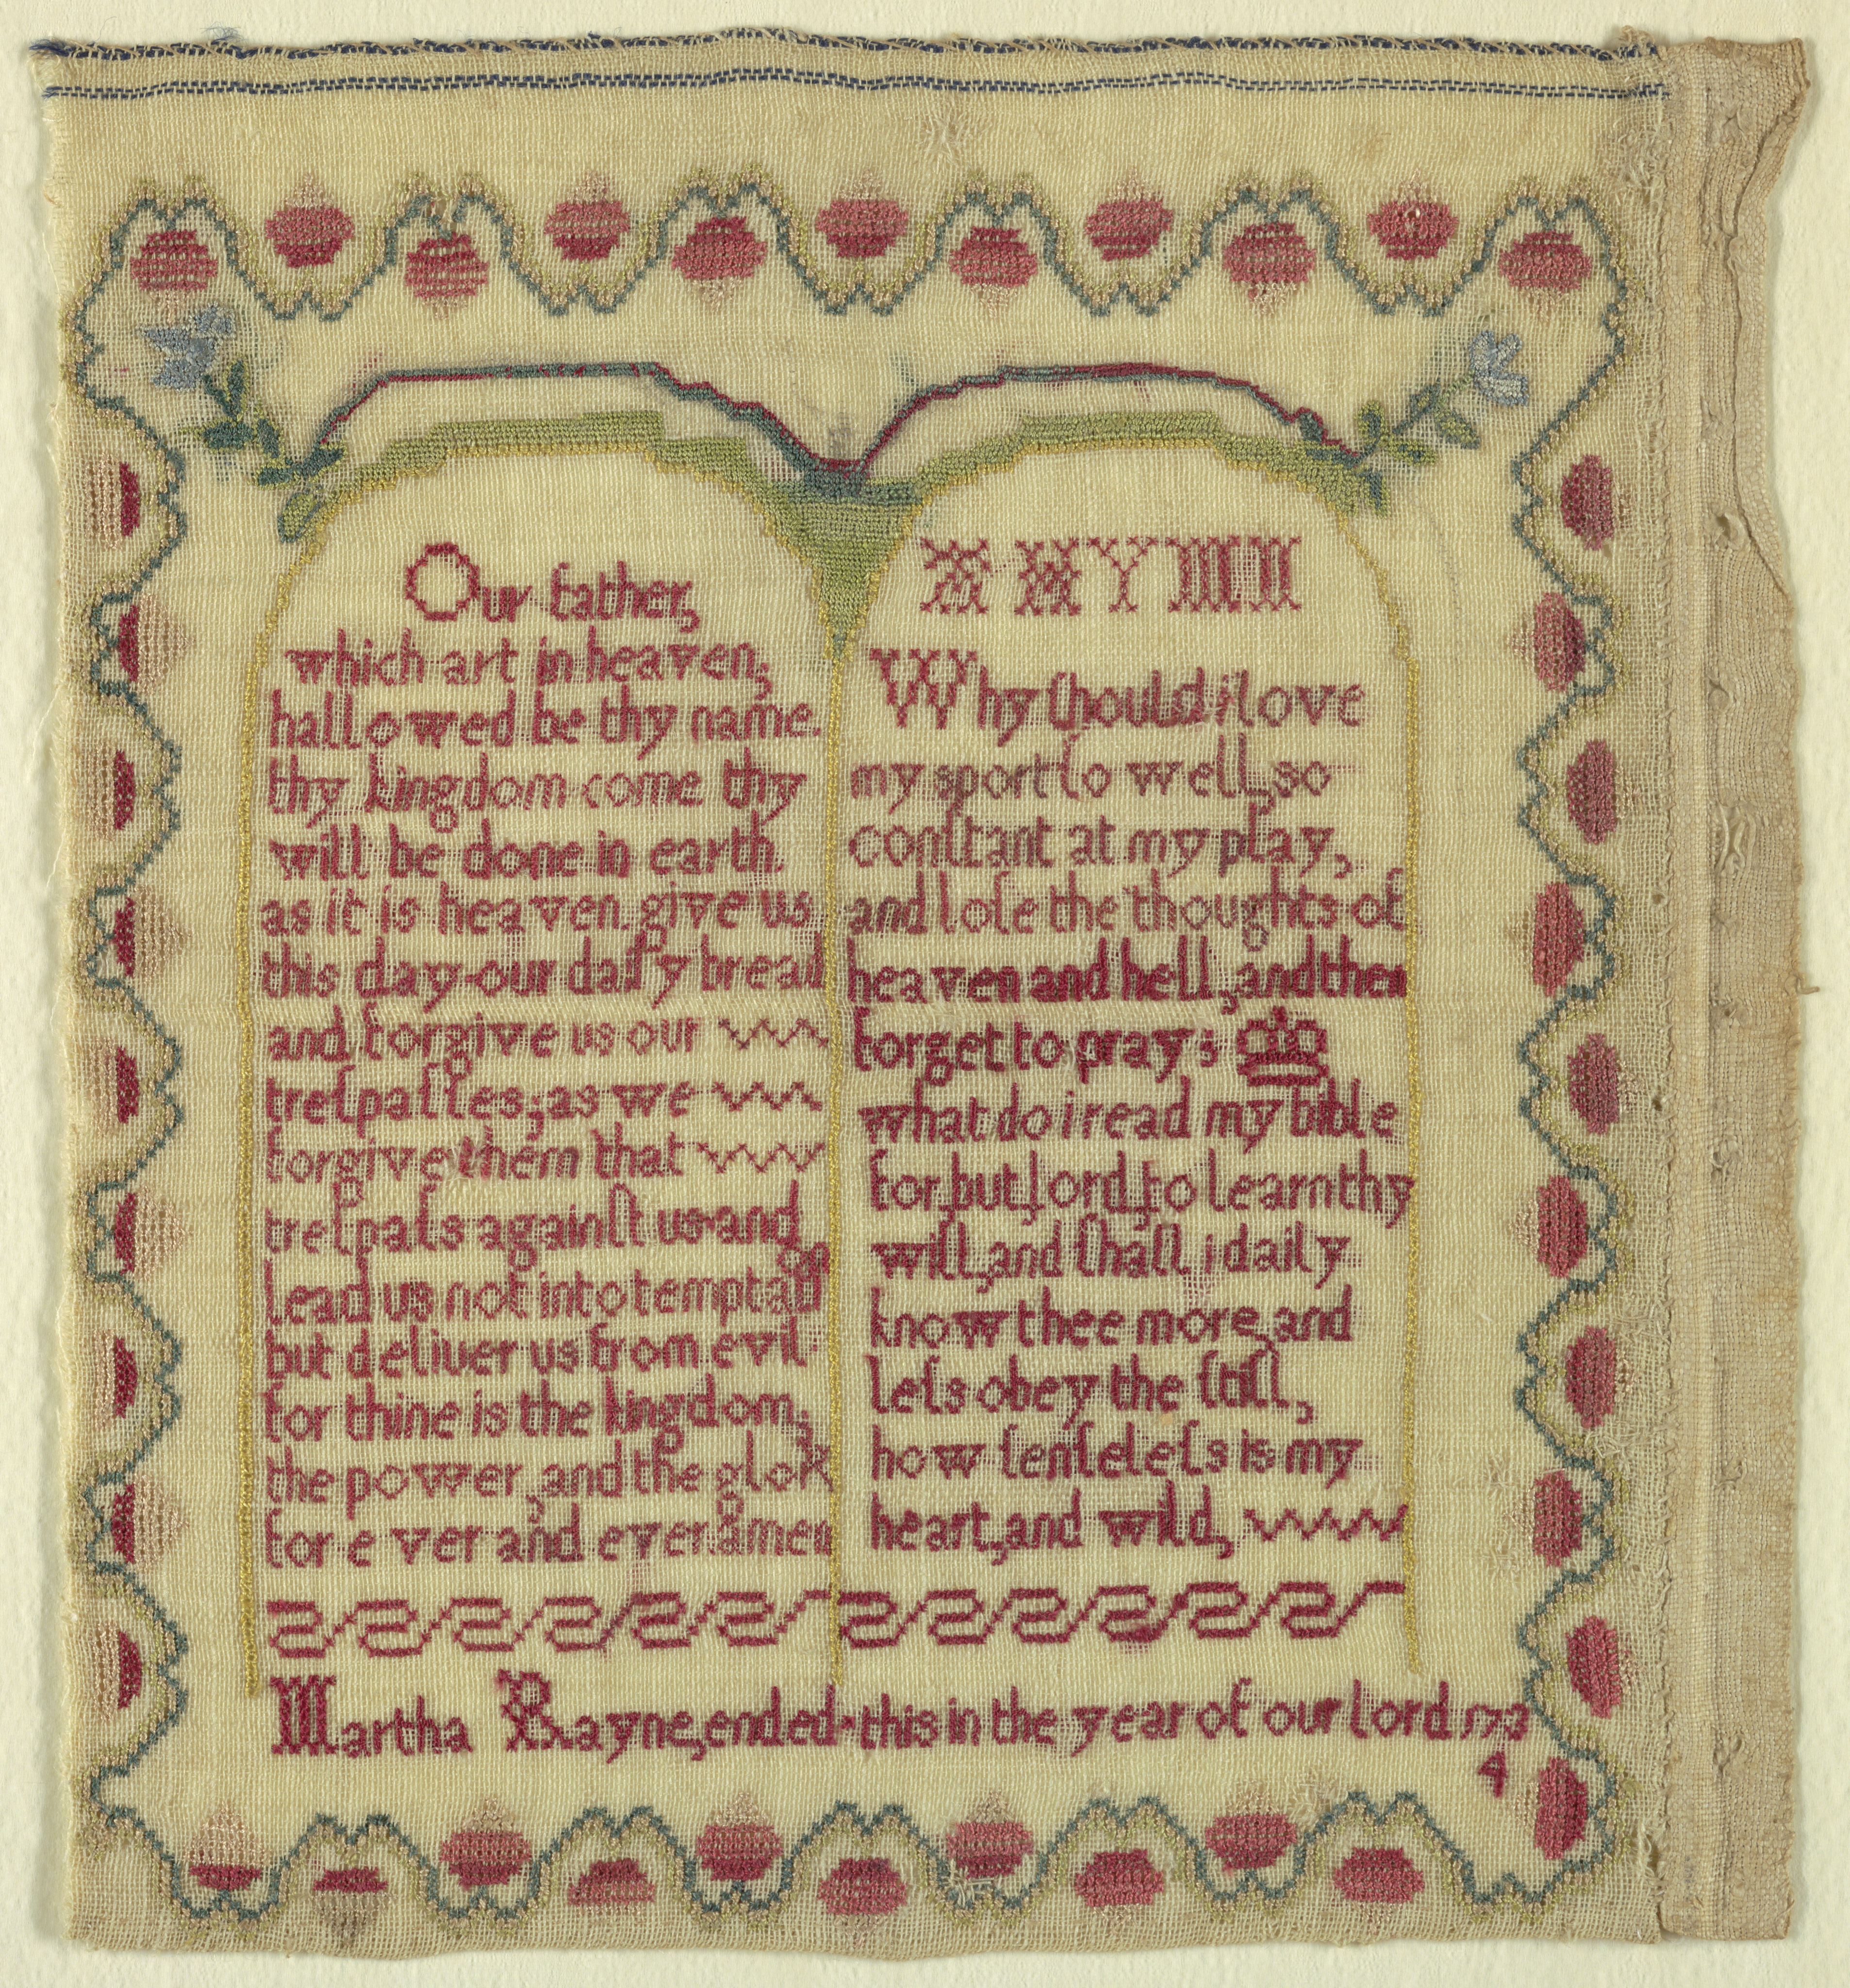 Our father,
which art in heaven,
hallowed be thy name.
thy kingdom come thy
will be done in earth.
as it is heaven. give us
this day our daily bread
and forgive us our
treſpaſſes, as we
forgive them that
treſpaſs againſt us and
lead us not into temptation
but deliver us from evil
for thine is the kingdom,
the power, and the glory
for ever and ever amen
Why ſhould i love
my sport ſo well, so
conſtant at my play,
and loſe the thoughts of
heaven and hell, and then
forget to pray;
what do i read my bible
for, but, lord, to learn thy
will, and ſhall i daily
know thee more, and
leſs obey the ſtill,
how ſenſeleſs is my
heart, and wild,
Martha Rayne, ended this in the year of our lord 173
4